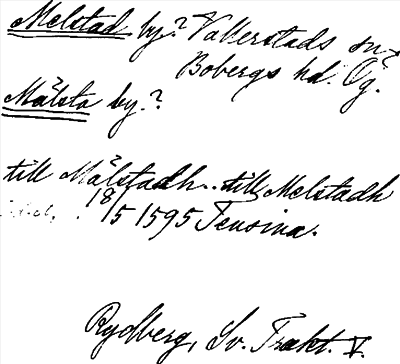 Melstad by? Vallerstads sn
Bobergs hd. Ög.
Mälsta by?
till Mälstadh.. till Melstadh
18/5 1595 Teusina.
Rydberg, Sv. Trakt. V.